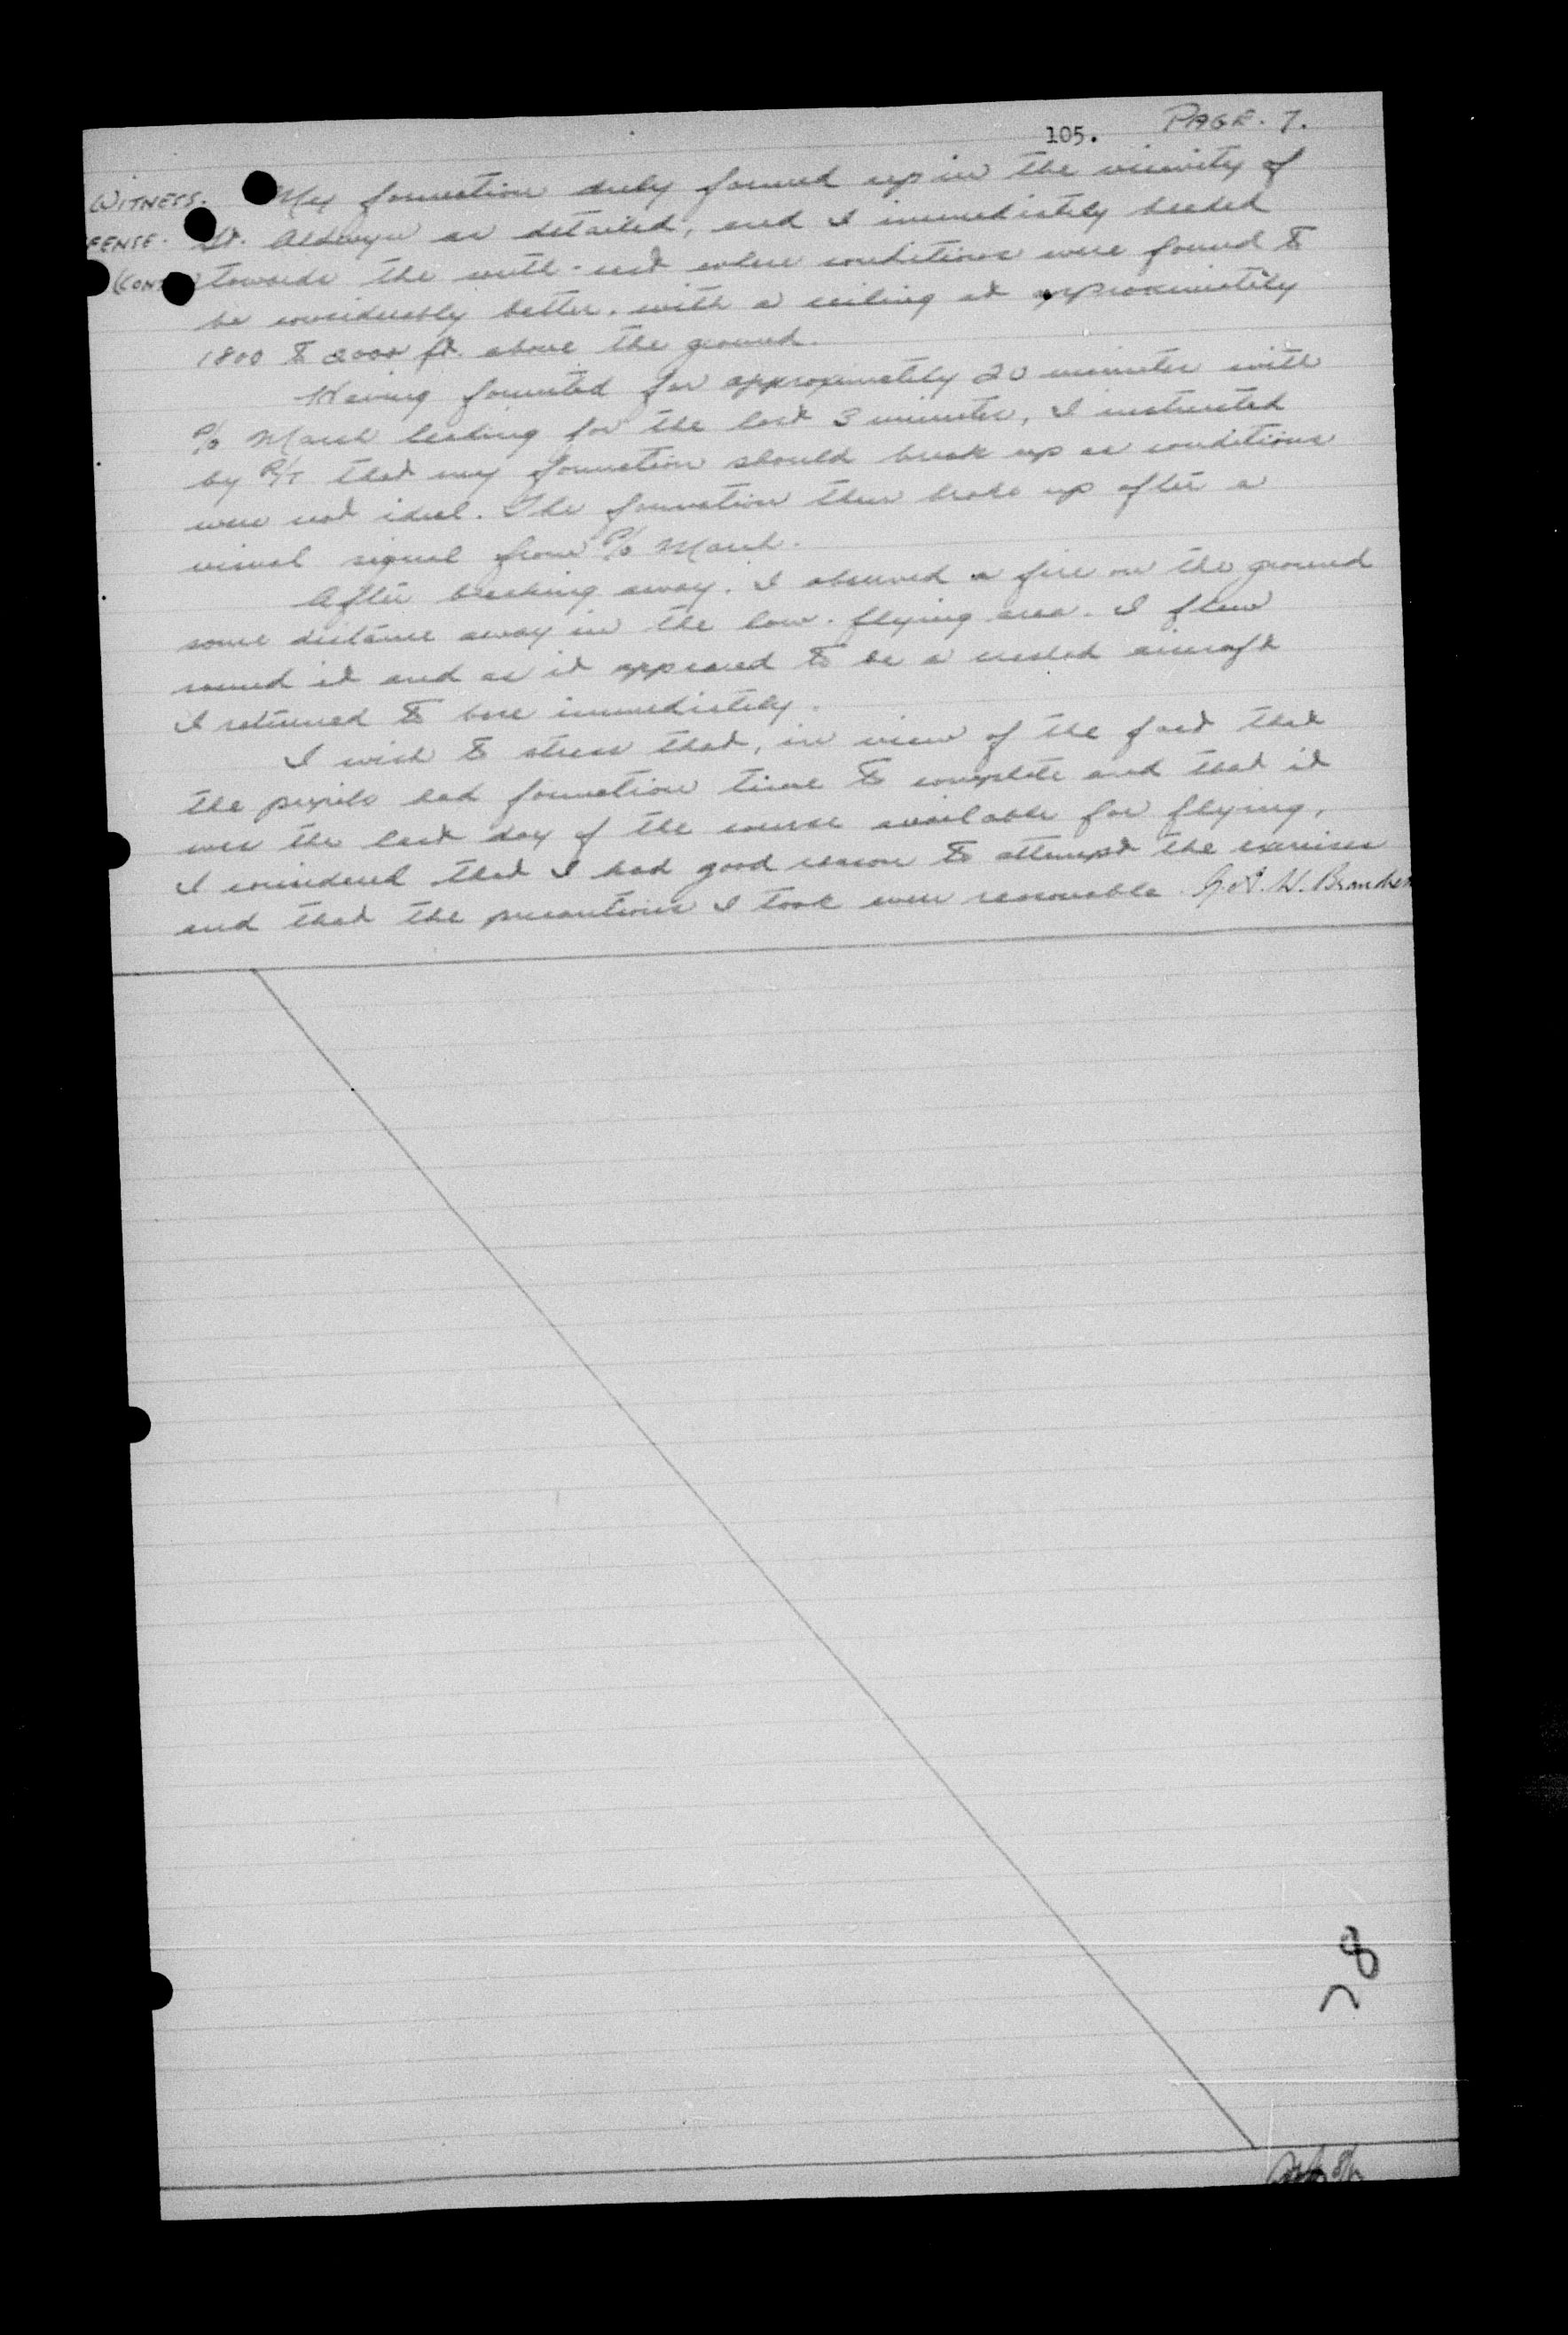 105. PAGE. 7.
WITNESS. My formation duly formed up in the vicinity of
FENSE. St. Aldwyn as detailed, and I immediately headed
(CONT towards the south-east where conditions were found to
be considerably better, with a ceiling at approximately
1800 to 2000 ft. above the ground.
Having formated for approximately 20 minutes with
P/O March leading for the last 3 minutes, I instructed
by R/T that my formation should break up as conditions
were not ideal. The formation then broke up after a
visual signal from P/O March.
After breaking away, I observed a fire on the ground
some distance away in the low-flying area. I flew
round it and as it appeared to be a crashed aircraft
I returned to base immediately.
I wish to stress that, in view of the fact that
the pupils had formation time to complete and that it
was the last day of the course available for flying,
I considered that I had good reason to attempt the exercise
and that the precautions I took were reasonable.
78